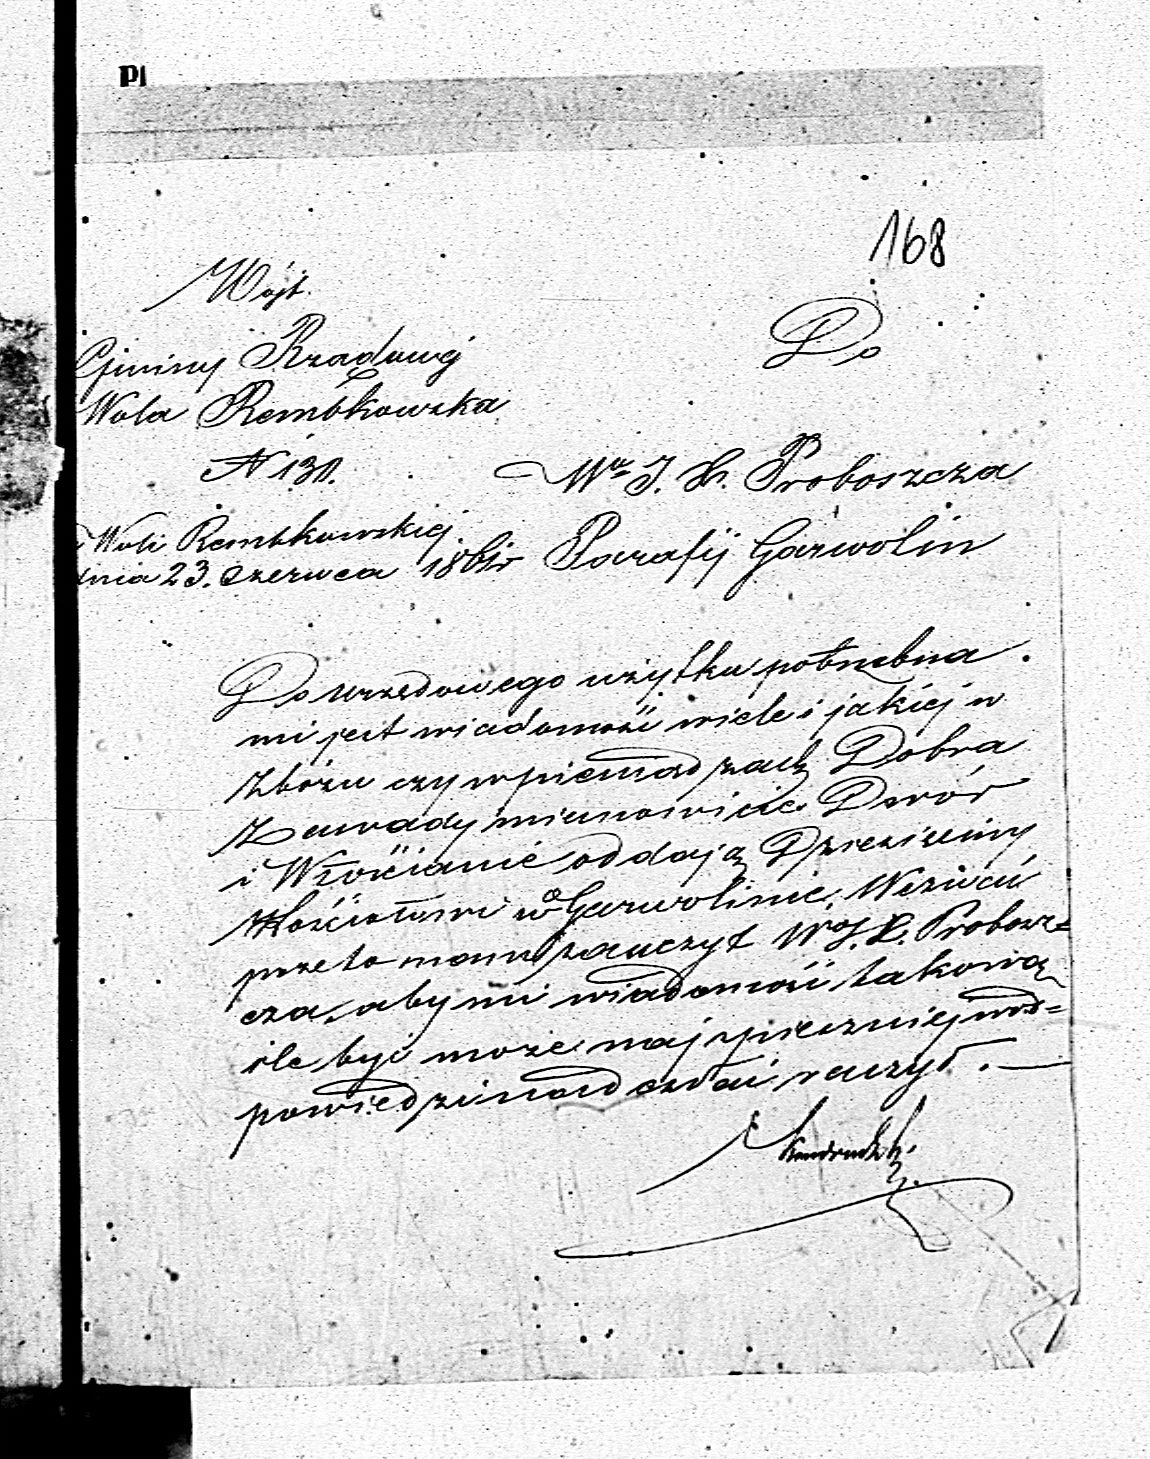 PI
168
Wójt
Gminy Rządowej
Wola Rembkowska
N 131.
w Woli Rembkowskiej
dnia 23. Czerwca 1861r
Do
Wo J. X. Proboszcza
Parafij Garwolin
Do urzędowego użytku potrzebna
mi jest wiadomość wiele i jakiej w
Zbożu czy w pieniądzach Dobra
Zawady mianowicie Dwór
i Włościanie oddają Dziesięciny
Kościołowi w Garwolinie, Wezwać
przeto mam zaszczyt Wo J. X. Probosz=
cza, aby mi wiadomość takową
ile być może najspieszniej w od=
powiedzi nadesłać raczył.